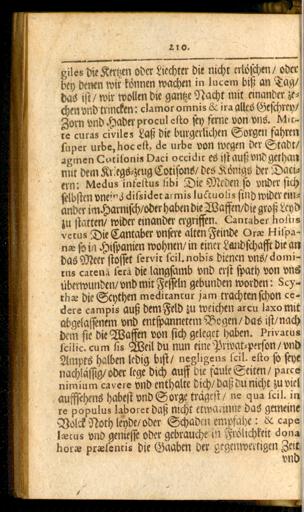 210.
giles die Kertzen oder Liechter die nicht erlöschen/ oder
bey denen wir können wachen in lucem biß an Tag/
das ist/ wir wollen die gantze Nacht mit einander ze-
chen und trincken: clamor omnis & ira alles Geschrey/
Zorn und Hader procul esto sey ferne von uns. Mit-
te curas civiles Laß die burgerlichen Sorgen fahren
super urbe, hoc est, de urbe von wegen der Stadt/
agmen Cotisonis Daci occidit es ist auß und gethan
mit dem Kriegszeug Cotisons/ des Königs der Daci-
ern: Medus infestus sibi Die Meden so under sich
selbsten uneins dissidet armis luctuosis sind wider ein-
ander im Harnisch/oder haben die Waffen/die groß Leyd
zu stiften/ wider einander ergriffen. Cantaber hostis
vetus Die Cantaber unsere alten Feinde Oræ Hispa-
næ so in Hispanien wohnen/ in einer Landschafft die an
das Meer stosset servit scil. nobis dienen uns/ domi-
tus catena serâ die langsamb und erst spath von uns
überwunden/ und mit Fesseln gebunden worden: Scy-
thæ die Scythen meditantur jam trachten schon ce-
dere campis auß dem Feld zu weichen arcu laxo mit
abgelassenem und entspannetem Bogen/ das ist/ nach
dem sie die Waffen von sich gelegt haben. Privatus
scilic. cum sis Weil du nun eine Privat-person/ und
Ampts halben ledig bist/ negligens scil. esto so seye
nachlässig/ oder lege dich auff die faule Seiten/ parce
nimium cavere und enthalte dich/ daß du nicht zu viel
auffsehens habest und Sorge tragest/ ne qua scil. in
re populus laboret daß nicht etwarinne das gemeine
Volck Noth leyde/ oder Schaden empfahe: & cape
lætus und geniesse oder gebrauche in Frölichkeit dona
horæ præsentis die Gaaben der gegenwertigen Zeit
und